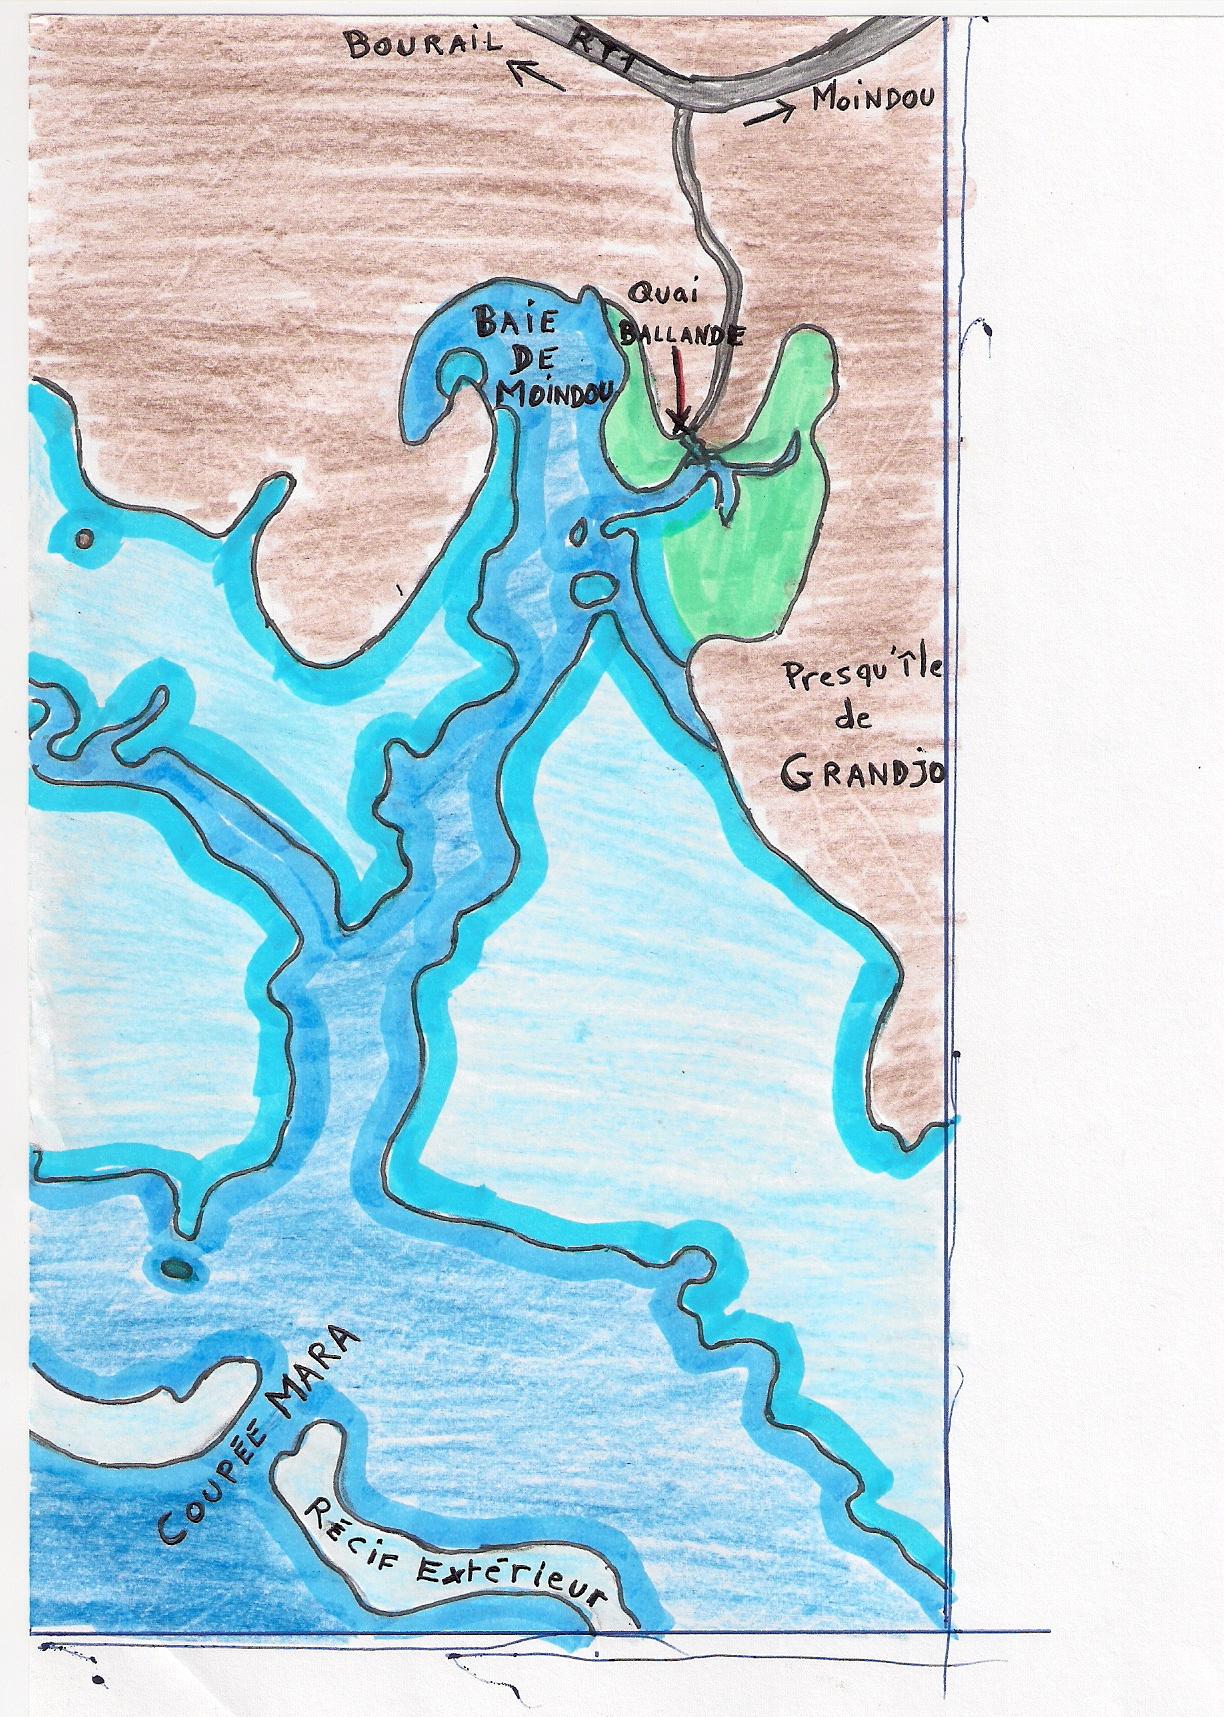 BOURAIL
RT1
MOINDOU
Quai
BALLANDE
BAIE
DE
MOINDOU
Presqu'île
de
GRANDJO
COUPÉE MARA
RÉCIF Extérieur